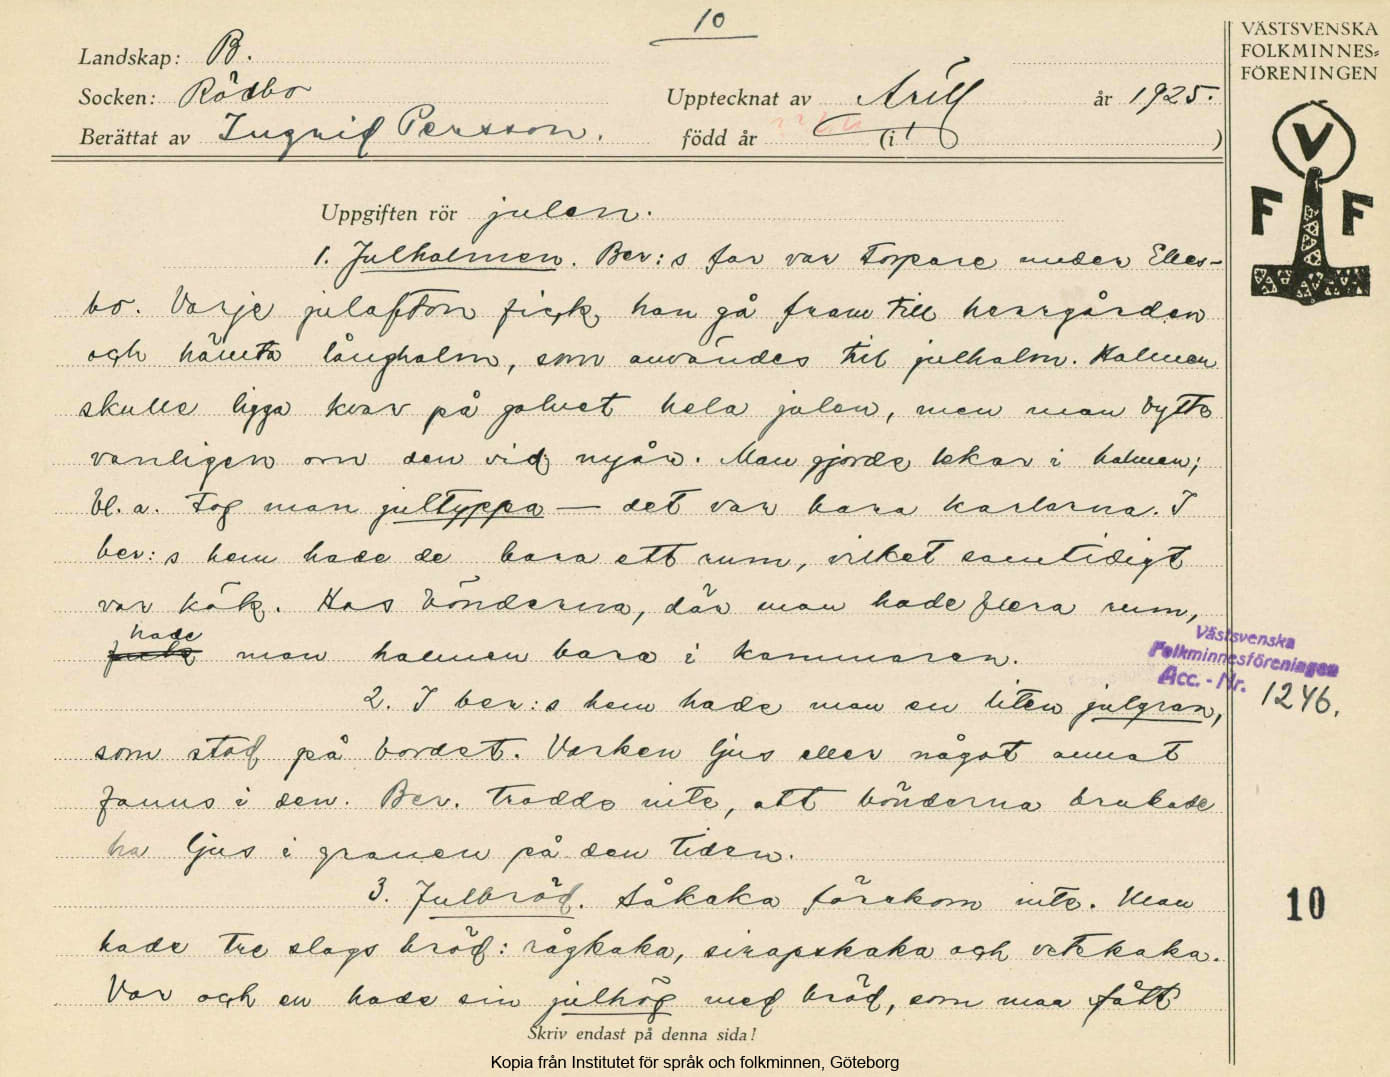 10
VÄSTSVENSKA
FOLKMINNES=
FÖRENINGEN
Landskap: B.
Socken: Rödbo
Upptecknat av Arill år 1925.
Berättat av Ingrid Persson.
född år (i )
V
F F
Uppgiften rör julen.
1. Julhalmen. Ber:s far var torpare under Elles-
bo. Varje julafton fick han gå fram till herrgården
och hämta långhalm, som användes till julhalm. Halmen
skulle ligga kvar på golvet hela julen, men man bytte
vanligen om den vid nyår. Man gjorde lekar i halmen;
bl. a. tog man jultyppa — det var bara karlarna. I
ber:s hem hade de bara ett rum, vilket samtidigt
var kök. Hos bönderna, där man hade flera rum,
hade
man halmen bara i kammaren.
Västsvenska
Folkminnesföreningen
Acc. - Nr. 1246.
2. I ber:s hem hade man en liten julgran,
som stod på bordet. Varken ljus eller något annat
fanns i den. Ber. trodde inte, att bönderna brukade
ha ljus i granen på den tiden.
3. Julbröd. Såkaka förekom inte. Man
10
hade tre slags bröd: rågkaka, sirapskaka och vetekaka.
Var och en hade sin julhög med bröd, som man fått
Skriv endast på denna sida!
Kopia från Institutet för språk och folkminnen, Göteborg